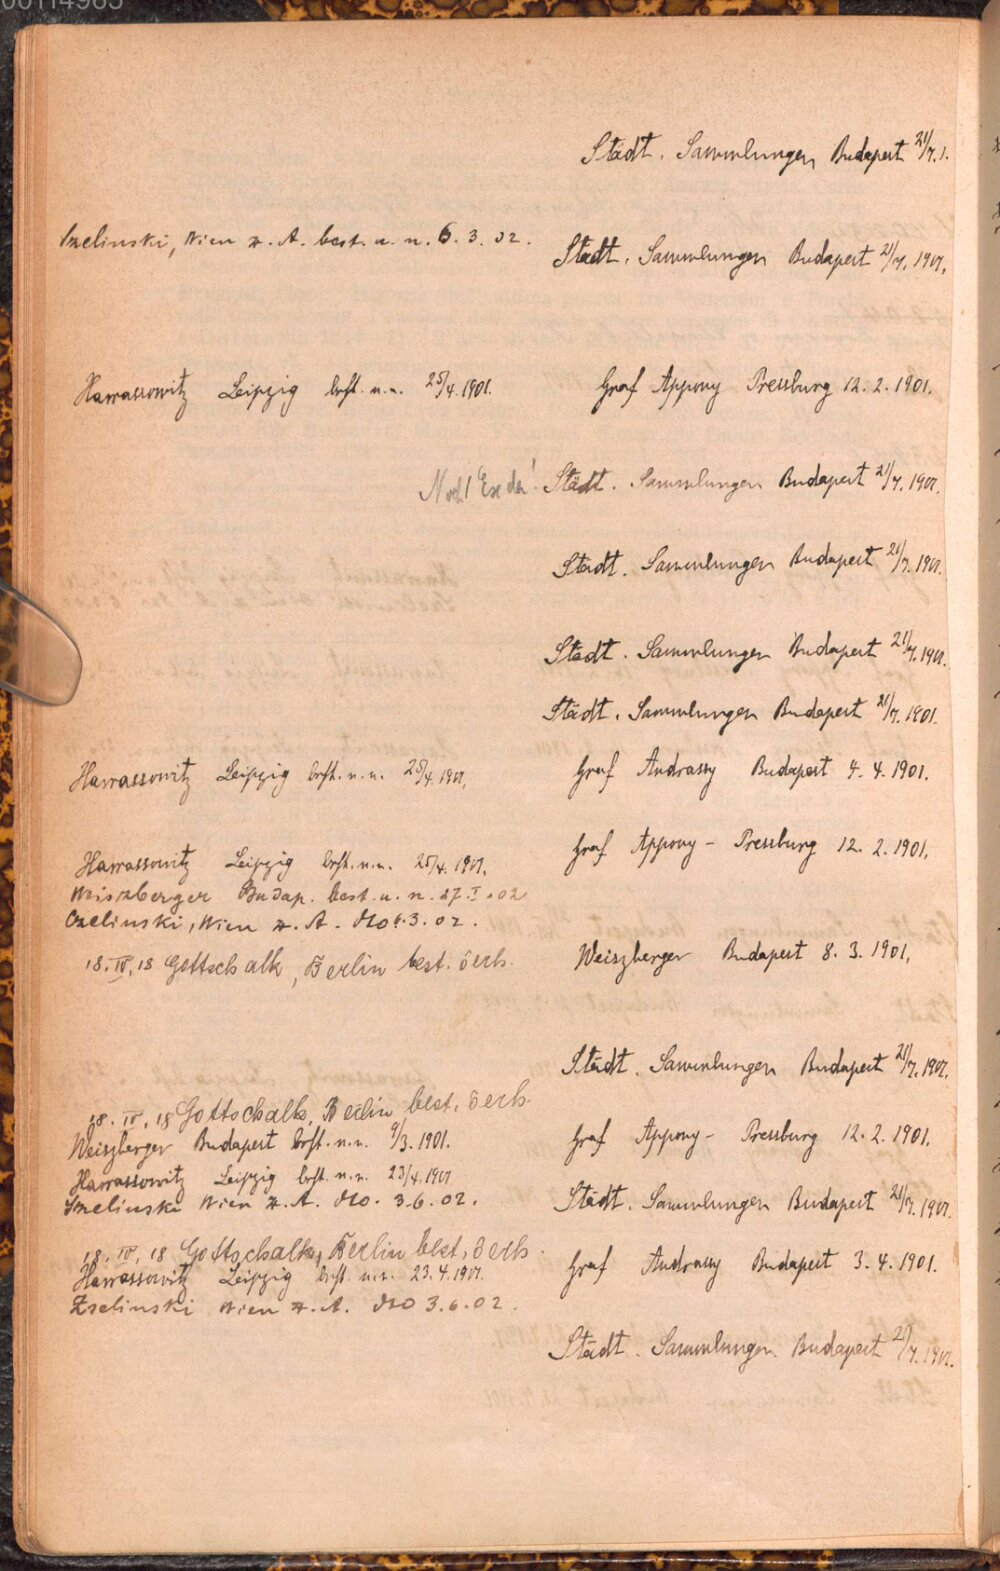 00114965
Städt. Sammlungen Budapest 21/7. 1.
Szelinski, Wien z. A. best. u. n. 6. 3. 02.
Städt. Sammlungen Budapest 21/7. 1901.
Harrassowitz Leipzig best. u. n. 25/4. 1901.
Graf Appony Pressburg 12. 2. 1901.
Noch 1 Ex da! Städt. Sammlungen Budapest 21/7. 1901.
Städt. Sammlungen Budapest 21/7. 1901.
Städt. Sammlungen Budapest 21/7. 1901.
Städt. Sammlungen Budapest 21/7. 1901.
Harrassowitz Leipzig best. u. n. 25/4. 1901.
Graf Andrassy Budapest 4. 4. 1901.
Graf Appony - Pressburg 12. 2. 1901.
Harrassowitz Leipzig best. u. n. 25/4. 1901.
Weiszberger Budap. best. u. n. 27. I. 02
Szelinski, Wien z. A. dto 6. 3. 02.
18. IV. 18 Gottschalk, Berlin best. öerh.
Weiszberger Budapest 8. 3. 1901.
Städt. Sammlungen Budapest 21/7. 1901.
18. IV. 18 Gottschalk, Berlin best. öerh.
Weiszberger Budapest best. u. n. 9/3. 1901.
Graf Appony - Pressburg 12. 2. 1901.
Harrassowitz Leipzig best. u. n. 23/4. 1901
Szelinski Wien z. A. dto. 3. 6. 02.
Städt. Sammlungen Budapest 21/7. 1901.
18. IV. 18 Gottschalk, Berlin best. öerh.
Harrassowitz Leipzig best. u. n. 23. 4. 1901.
Graf Andrassy Budapest 3. 4. 1901.
Szelinski Wien z. A. dto 3. 6. 02.
Städt. Sammlungen Budapest 21/7. 1901.